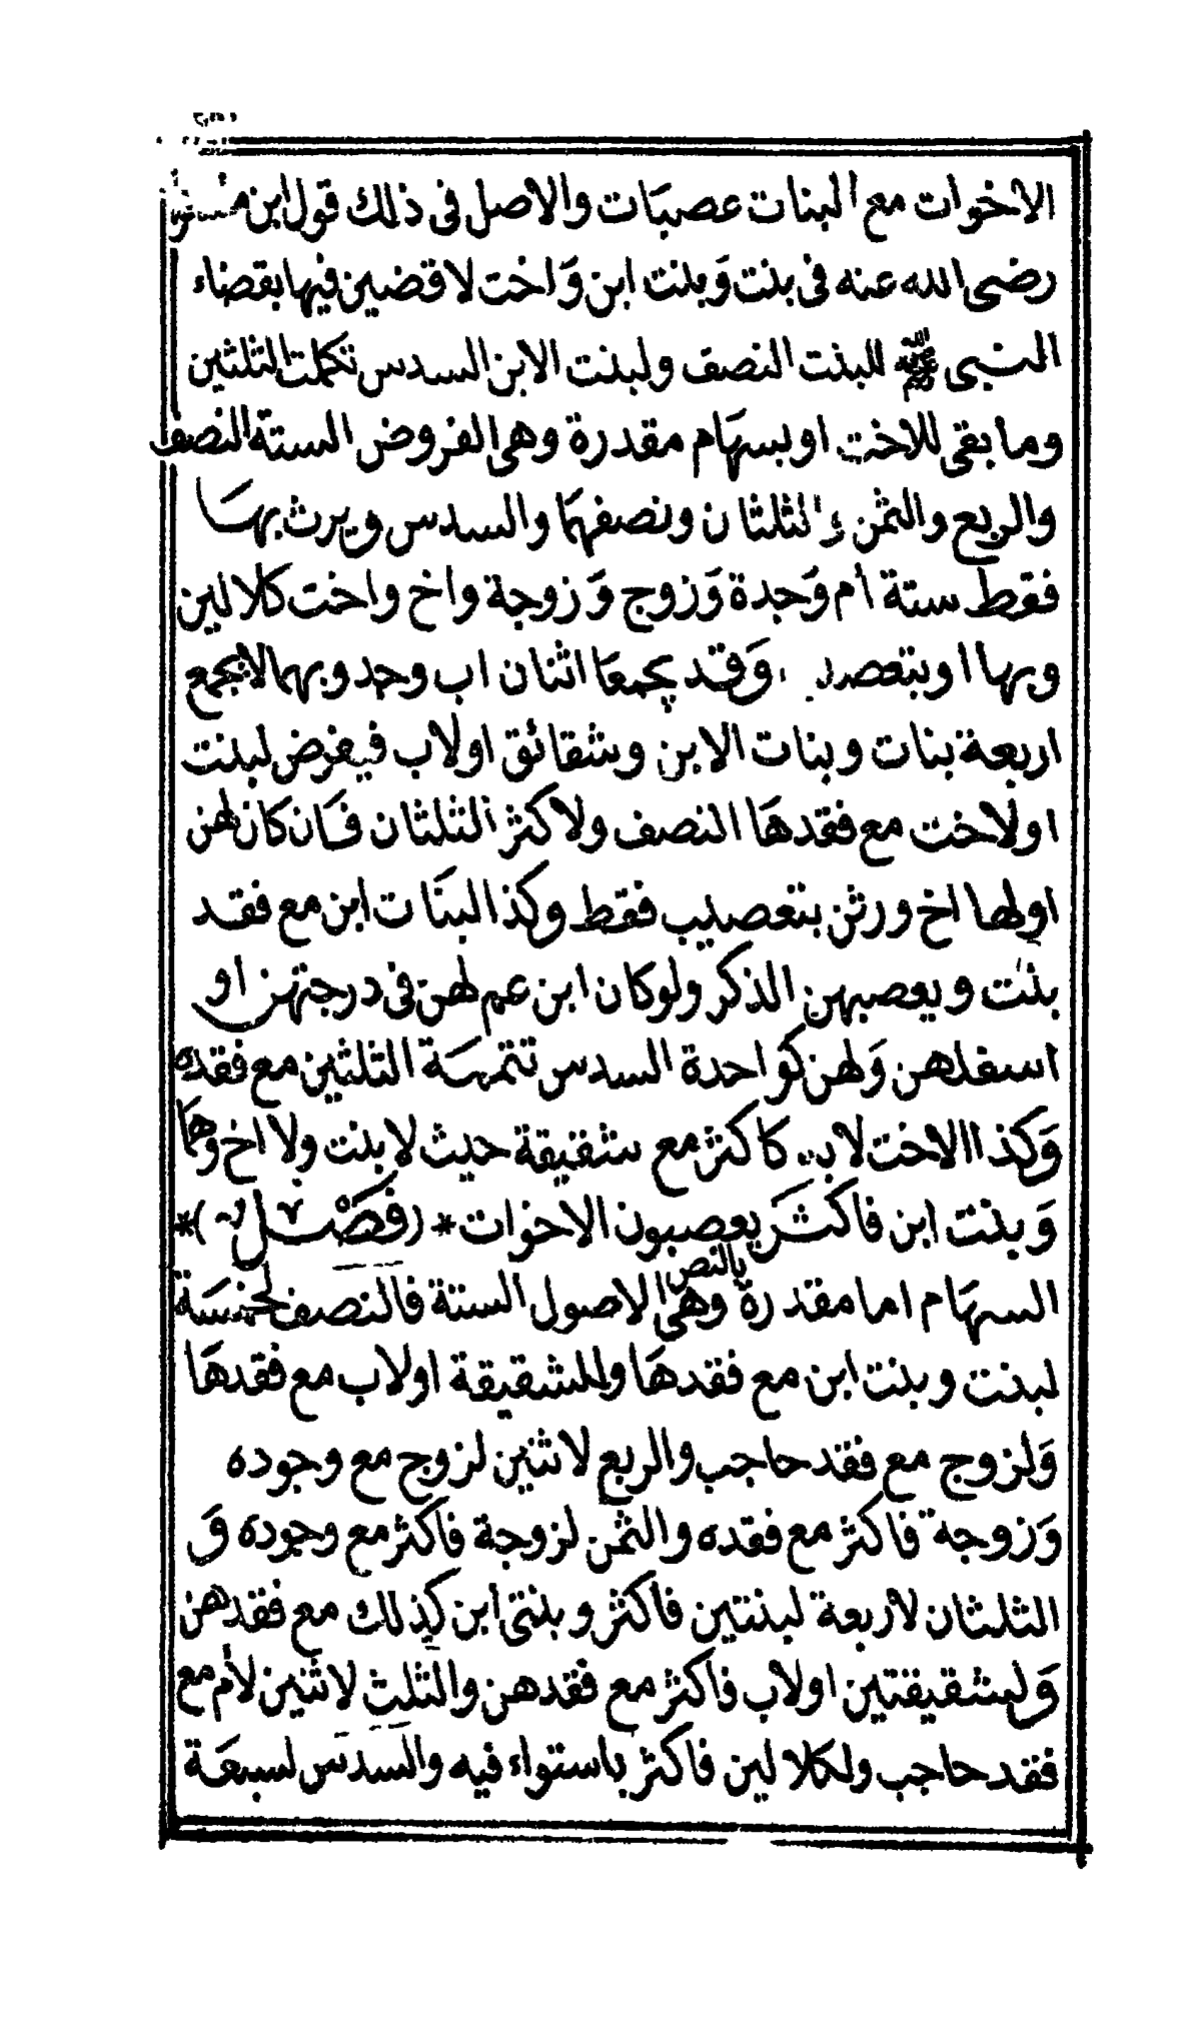 الاخوات مع البنات عصبَات والاصل فى ذلك قول ابن
رضى الله عنه فى بنت وَبنت ابن وَاخت لاقضين فيها بقضاء
النبى ﷺ للبنت النصف ولبنت الابن السدس تكملت الثلثين
وما بقى للاخت او بسهَام مقدرة وهى الفروض الستة النصف
والربع والثمن والثلثان ونصفهمَا والسدس ويرث بهَا
فقط ستة أم وَجدة وَزوج وَزوجة واخ واخت كلالين
وبها او بتعصيب وَقد يجمعَا اثنان اب وجد وبهما لا يجمع
اربعة بنات وبنات الابن وشقائق اولاب فيفرض لبنت
اولاخت مع فقدهَا النصف ولاكثر الثلثان فَان كان لهن
اولها اخ ورثن بتعصيب فقط وكذا البنَات ابن مع فقد
بنت ويعصبهن الذكر ولو كان ابن عم لهن فى درجتهن او
اسفلهن وَلهن كَو احدة السدس تتمهَة الثلثين مع فقده
وَكذا الاخت لاب كاكثر مع شقيقة حيث لا بنت ولا اخ وهَا
وَبنت ابن فاكثَر يعصبون الاخوات * (فَصْل) *
السهَام اما مقدرة بالنص وهى الاصول الستة فالنصف لخمسَة
لبنت وبنت ابن مع فقدهَا وللشقيقة اولاب مع فقدهَا
وَلزوج مع فقد حاجب والربع لاثنين لزوج مع وجوده
وَزوجة فاكثر مع فقده والثمن لزوجة فاكثر مع وجوده وَ
الثلثان لاربعة لبنتين فاكثر وبنتى ابن كذلك مع فقدهن
وَلشقيقتين اولاب فاكثر مع فقدهن والثلث لاثنين لأم مع
فقد حاجب ولكلالين فاكثر باستواء فيه والسدس لسبعَة